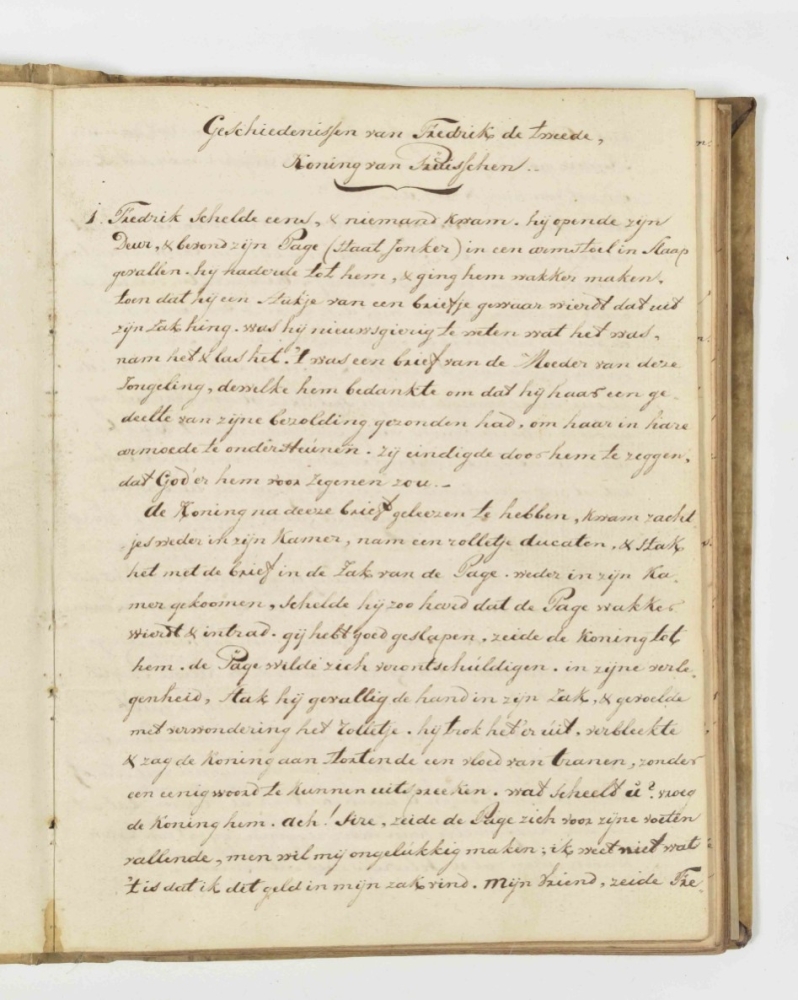 Geschiedenissen van Fredrik de tweede,
Koning van Pruisschen.
1. Fredrik schelde eens, & niemand kwam. hij opende zijn
Deur, & bevond zijn Page (Staat Jonker) in een armstoel in slaap
gevallen. hij naderde tot hem, & ging hem wakker maken,
toen dat hij een stukje van een briefje gewaar wierdt dat uit
zijn Zak hing. was hij nieuwsgierig te weten wat het was,
nam het & las het. 't was een brief van de Moeder van deze
Jongeling, dewelke hem bedankte om dat hij haar een ge
deelte van zijne bezolding gezonden had, om haar in hare
armoede te ondersteunen. zij eindigde door hem te zeggen,
dat God er hem voor zegenen zou. –
de Koning na deeze brief geleezen te hebben, kwam zacht
jes weder in zijn Kamer, nam een rolletje ducaten, & stak
het met de brief in de Zak van de Page. weder in zijn Ka-
mer gekoomen, schelde hij zoo hard dat de Page wakker
wierdt & intrad. gij hebt goed geslapen, zeide de Koning tot
hem. de Page wilde zich verontschuldigen. in zijne verle-
genheid, stak hij gevallig de hand in zijn Zak, & gevoelde
met verwondering het rolletje. hij trok het 'er uit, verbleekte
& zag de Koning aan stortende een vloed van tranen, zonder
een eenig woord te kunnen uitspreeken. wat scheelt u? vroeg
de Koning hem. ach! Sire, zeide de Page zich voor zijne voeten
vallende, men wil mij ongelukkig maken; ik weet niet wat
't is dat ik dit geld in mijn zak vind. Mijn Vriend, zeide Fre-